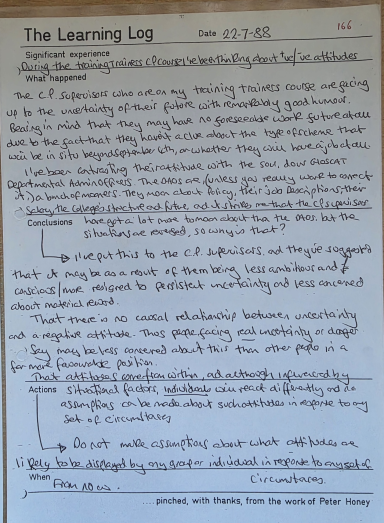 166
The Learning Log
Date 22-7-88
Significant experience
During the training trainers CP course I've been thinking about +ve/-ve attitudes
What happened
The C.P. supervisors who are on my training trainers course are facing
up to the uncertainty of their future with remarkably good humour.
Bearing in mind that they may have no foreseeable work future at all
due to the fact that they haven't a clue about the type of scheme that
will be in situ beyond September 6th, or whether they will have a job at all
I've been contrasting their attitude with the sour, dour GLOSCAT
Departmental Admin Officers. The DAOs are (unless you really work to correct
it) a bunch of moaners. They moan about policy, their Job Descriptions, their
Salary, the College's structure and future and it strikes me that the C.P supervisors
Conclusions have got a lot more to moan about than the DAOs. but the
situations are reversed, so why is that?
I've put this to the C.P. supervisors and they've suggested
that it may be as a result of them being less ambitious and
conscious/more resigned to persistent uncertainty and less concerned
about material reward.
That there is no causal relationship between uncertainty
and a negative attitude. Thus people facing real uncertainty or danger
say may be less concerned about this than other people in a
far more favourable position.
That attitudes come from within, and although influenced by
Actions situational factors, individuals will react differently and no
assumptions can be made about such attitudes in response to any
set of circumstances
Do not make assumptions about what attitudes are
likely to be displayed by any group or individual in response to any set of
circumstances.
When From now.
....pinched, with thanks, from the work of Peter Honey